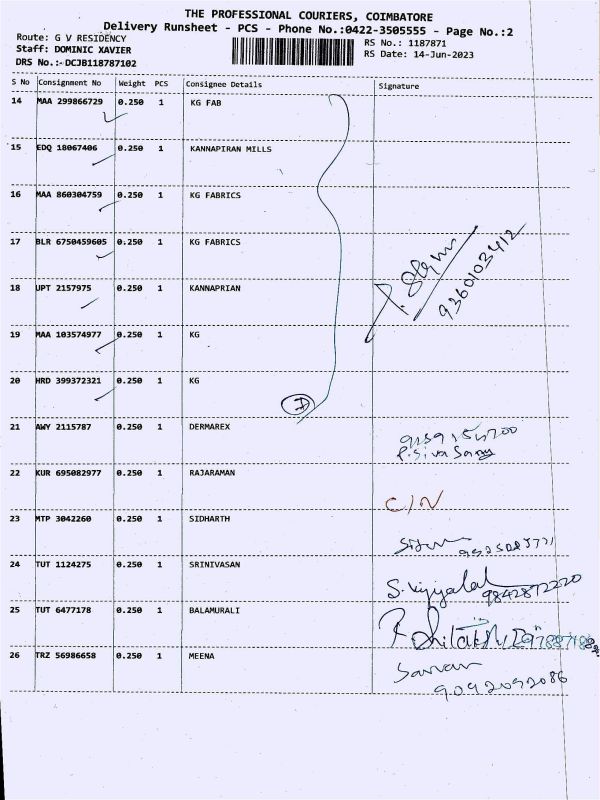 THE PROFESSIONAL COURIERS, COIMBATORE
Delivery Runsheet - PCS - Phone No.:0422-3505555 - Page No.:2
Route: G V RESIDENCY
Staff: DOMINIC XAVIER
DRS No.:-DCJB118787102
RS No.: 1187871
RS Date: 14-Jun-2023
S No Consignment No Weight PCS Consignee Details Signature
14 MAA 299866729 0.250 1 KG FAB
15 EDQ 18067406 0.250 1 KANNAPIRAN MILLS
16 MAA 860304759 0.250 1 KG FABRICS
17 BLR 6750459605 0.250 1 KG FABRICS
9360103412
18 UPT 2157975 0.250 1 KANNAPRIAN
19 MAA 103574977 0.250 1 KG
20 HRD 399372321 0.250 1 KG
7
21 AWY 2115787 0.250 1 DERMAREX
22 KUR 695082977 0.250 1 RAJARAMAN
C/N
23 MTP 3042260 0.250 1 SIDHARTH
24 TUT 1124275 0.250 1 SRINIVASAN
9842872220
25 TUT 6477178 0.250 1 BALAMURALI
26 TRZ 56986658 0.250 1 MEENA
9092092086